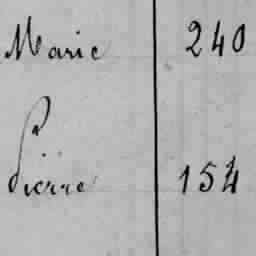 Marie 240
Pierre 154